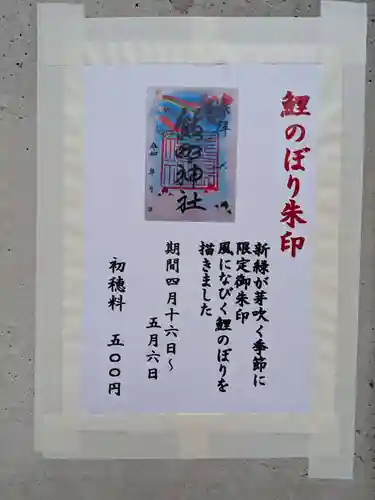 鯉のぼり朱印
新緑が芽吹く季節に
限定御朱印
風になびく鯉のぼりを
描きました
期間四月十六日〜
五月六日
初穂料 五〇〇円
奉拝
神社
令和 年 月